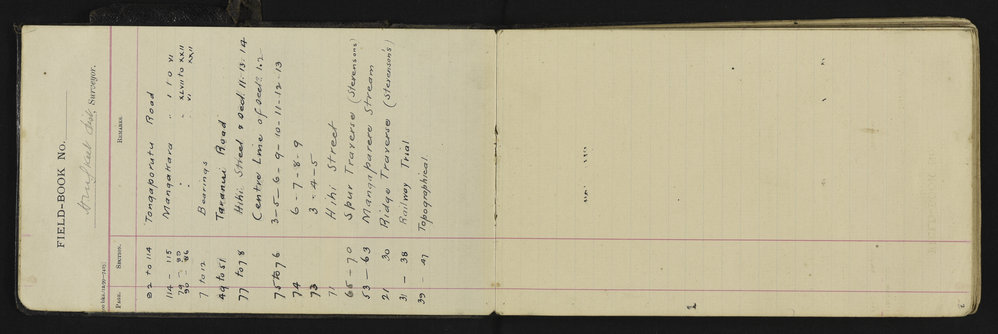 FIELD-BOOK No.
Surveyor.
PAGE. SECTION. REMARKS.
82 to 114 Tongaporutu Road
114 - 115 Mangakara " I to VI
79 - 80 " " XLVII to XXII
80 - 86 " VI XXII
7 to 12 Bearings
49 to 51 Taranui Road
77 to 78 Hihi Street & Secs. 11-13-14
Centre Line of Secs. 1.2
75 to 76 3-5-6-9-10-11-12-13
74 6-7-8-9
73 3-4-5
71 Hihi Street
65 - 70 Spur Traverse (Stevenson's)
53 - 63 Mangaparere Stream
21 30 Ridge Traverse (Stevenson's)
31 - 38 Railway Trial
39 - 47 Topographical
1
2